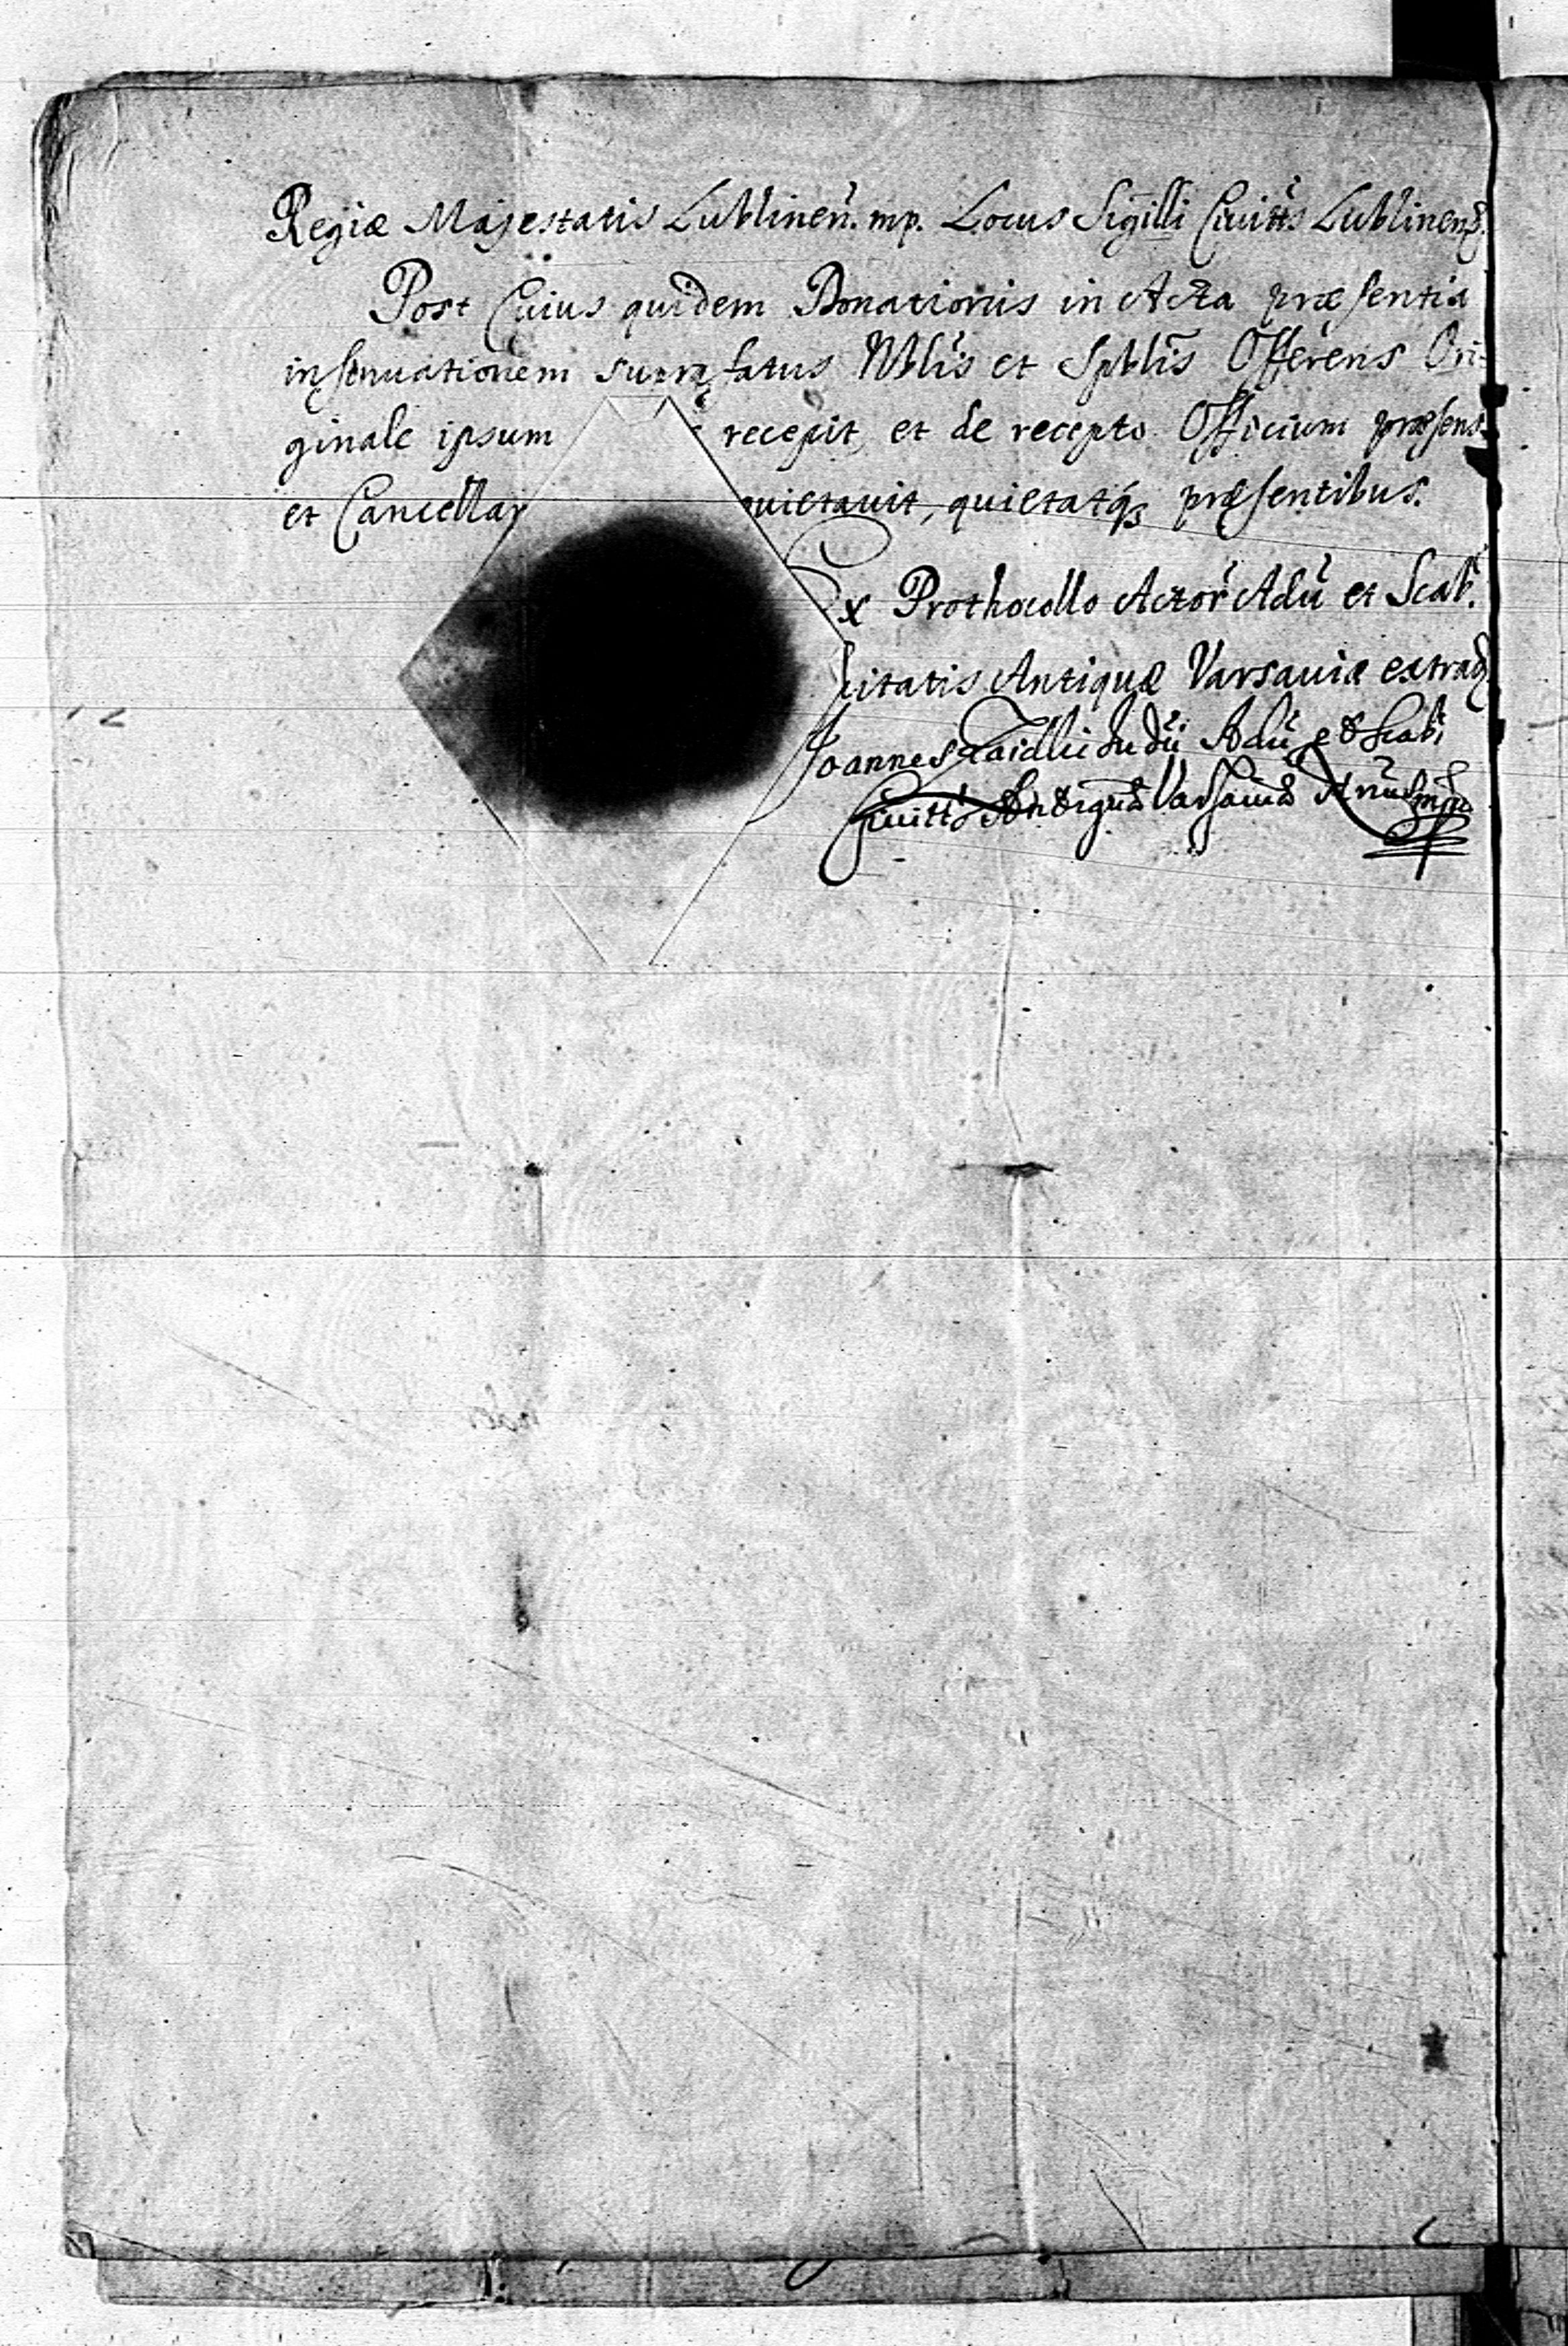 Regiæ Majestatis Lublinen. mp. Locus Sigilli Civitts Lublinens.
Post Cuius quidem Donationis in Acta præsentia
insinuationem supra fatus Nblis et Spblis Offerens Ori-
ginale ipsum recepit, et de recepto Officium præsens
et Cancellar quietavit, quietatqs præsentibus.
Ex Prothocollo Actor Adu et Scab.
Civitatis Antiquæ Varsaviæ extrad
Joannes Adu et Scab
Civitts Antiqua Varsavia mp